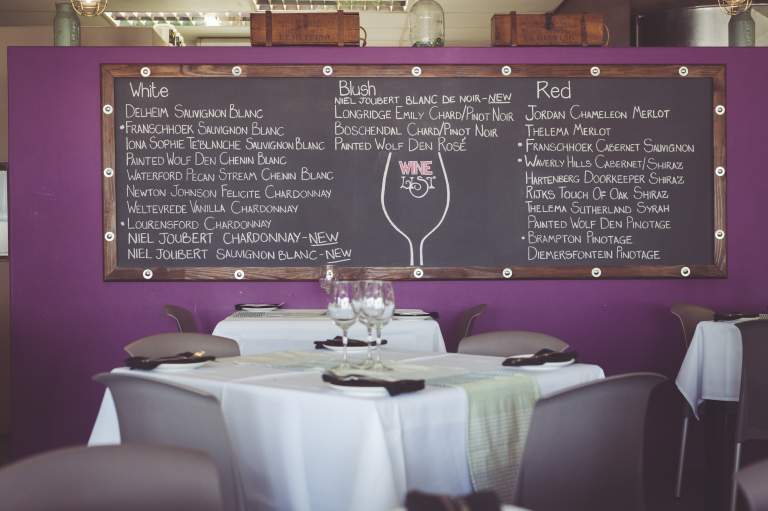 White
DELHEIM SAUVIGNON BLANC
• FRANSCHHOEK SAUVIGNON BLANC
IONA SOPHIE TEBLANCHE SAUVIGNON BLANC
PAINTED WOLF DEN CHENIN BLANC
WATERFORD PECAN STREAM CHENIN BLANC
NEWTON JOHNSON FELICITE CHARDONNAY
WELTEVREDE VANILLA CHARDONNAY
• LOURENSFORD CHARDONNAY
NIEL JOUBERT CHARDONNAY-NEW
NIEL JOUBERT SAUVIGNON BLANC-NEW
Blush
NIEL JOUBERT BLANC DE NOIR-NEW
LONGRIDGE EMILY CHARD/PINOT NOIR
BOSCHENDAL CHARD/PINOT NOIR
PAINTED WOLF DEN ROSÉ
WINE
LIST
Red
JORDAN CHAMELEON MERLOT
THELEMA MERLOT
• FRANSCHHOEK CABERNET SAUVIGNON
• WAVERLY HILLS CABERNET/SHIRAZ
HARTENBERG DOORKEEPER SHIRAZ
RIJKS TOUCH OF OAK SHIRAZ
THELEMA SUTHERLAND SYRAH
PAINTED WOLF DEN PINOTAGE
• BRAMPTON PINOTAGE
DIEMERSFONTEIN PINOTAGE